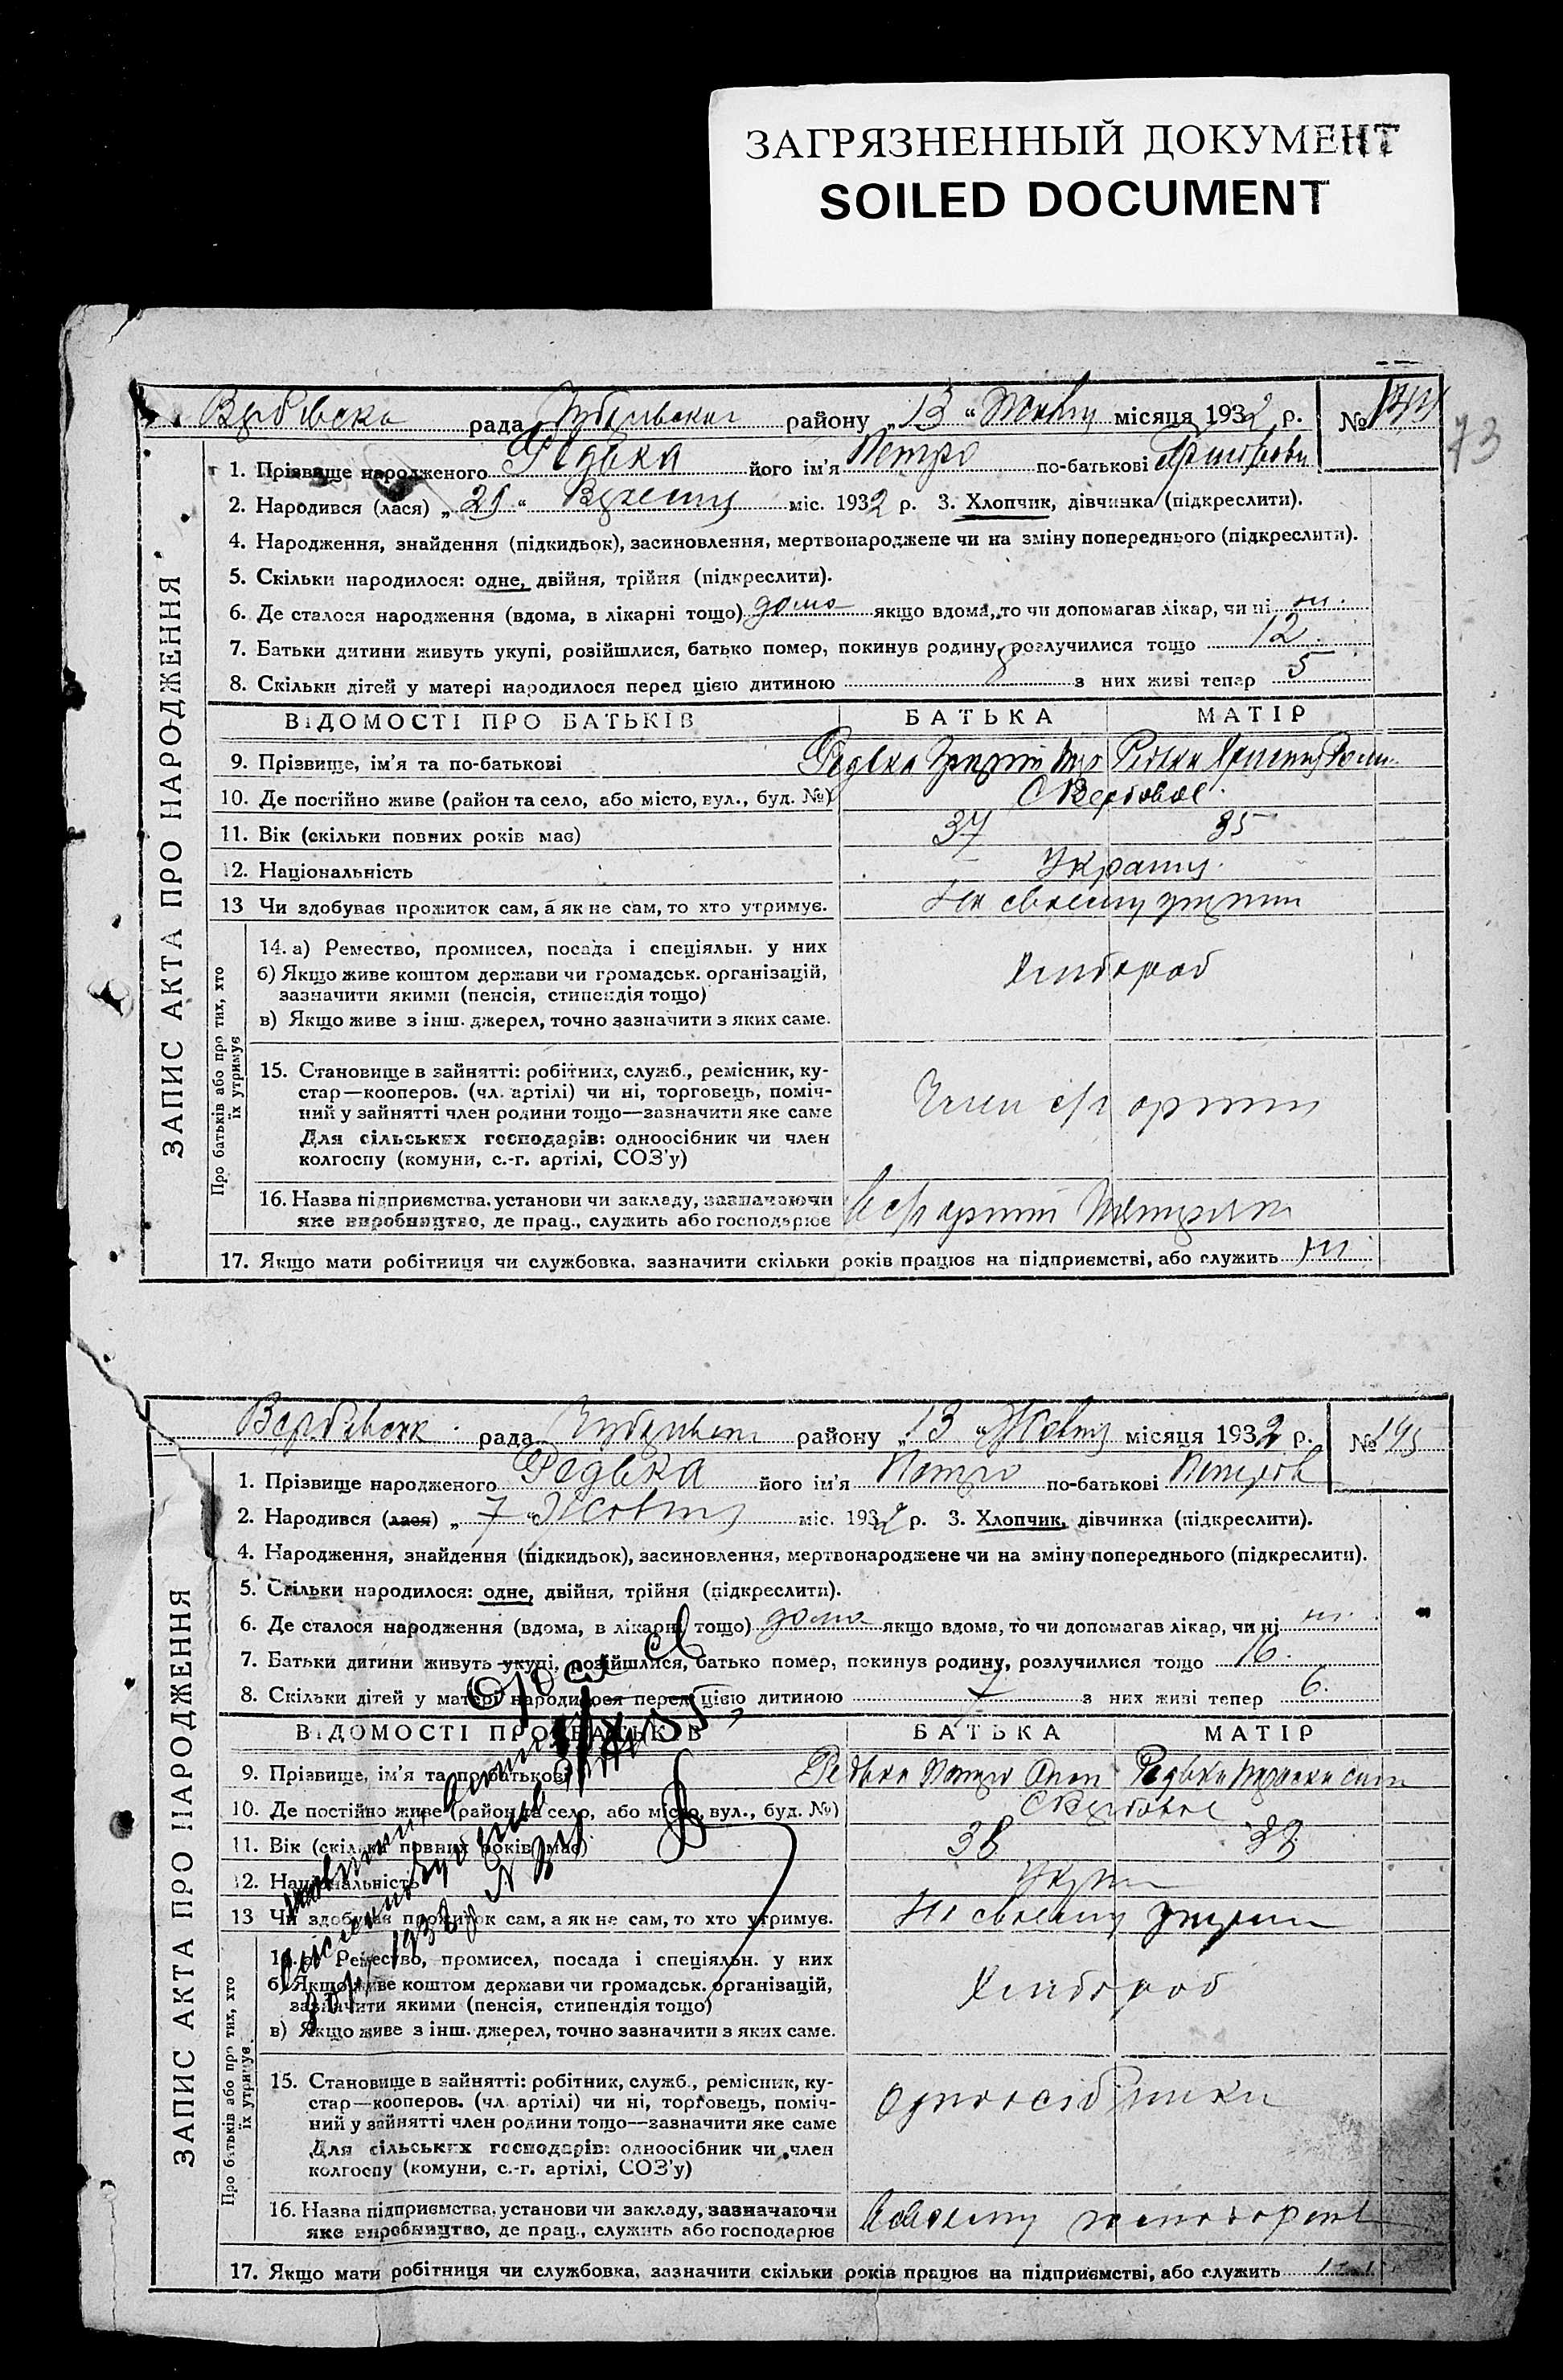 ЗАГРЯЗНЕННЫЙ ДОКУМЕНТ
SOILED DOCUMENT
73
ЗАПИС АКТА ПРО НАРОДЖЕННЯ
рада району „13“ місяця 1932 р. №
1. Прізвище народженого Редька його ім'я Петро по-батькові
2. Народився (лася) „ “ Вересня міс. 1932 р. 3. Хлопчик, дівчинка (підкреслити).
4. Народження, знайдення (підкидьок), засиновлення, мертвонароджене чи на зміну попереднього (підкреслити).
5. Скільки народилося: одне, двійня, трійня (підкреслити).
6. Де сталося народження (вдома, в лікарні тощо) дома якщо вдома, то чи допомагав лікар, чи ні ні.
7. Батьки дитини живуть укупі, розійшлися, батько помер, покинув родину, розлучилися тощо 12.
8. Скільки дітей у матері народилося перед цією дитиною 8 з них живі тепер 5
ВІДОМОСТІ ПРО БАТЬКІВ БАТЬКА МАТІР
9. Прізвище, ім'я та по-батькові Редька Редька
10. Де постійно живе (район та село, або місто, вул., буд. №) С Вербовое.
11. Вік (скільки повних років має) 37 35
12. Національність
13 Чи здобуває прожиток сам, а як не сам, то хто утримує. На своєму утрим
Про батьків або про тих, хто їх утримує
14. а) Ремество, промисел, посада і спеціяльн. у них
б) Якщо живе коштом держави чи громадськ. організацій,
зазначити якими (пенсія, стипендія тощо) Хлибороб
в) Якщо живе з інш. джерел, точно зазначити з яких саме.
15. Становище в зайнятті: робітник, служб., ремісник, ку-
стар—кооперов. (чл. артілі) чи ні, торговець, поміч-
ний у зайнятті член родини тощо—зазначити яке саме Член с/г артили
Для сільських господарів: одноосібник чи член
колгоспу (комуни, с.-г. артілі, СОЗ'у)
16. Назва підприємства, установи чи закладу, зазначаючи
яке виробництво, де прац., служить або господарює В с/г артили
17. Якщо мати робітниця чи службовка, зазначити скільки років працює на підприємстві, або служить ні
ЗАПИС АКТА ПРО НАРОДЖЕННЯ
рада району „13“ Жовтня місяця 1932 р. № 195
1. Прізвище народженого Редька його ім'я Петро по-батькові Петров
2. Народився (лася) „7“ Жовтня міс. 1932 р. 3. Хлопчик, дівчинка (підкреслити).
4. Народження, знайдення (підкидьок), засиновлення, мертвонароджене чи на зміну попереднього (підкреслити).
5. Скільки народилося: одне, двійня, трійня (підкреслити).
6. Де сталося народження (вдома, в лікарні тощо) дома якщо вдома, то чи допомагав лікар, чи ні ні.
7. Батьки дитини живуть укупі, розійшлися, батько помер, покинув родину, розлучилися тощо 16.
8. Скільки дітей у матері народилося перед цією дитиною 7 з них живі тепер 6.
ВІДОМОСТІ ПРО БАТЬКІВ БАТЬКА МАТІР
9. Прізвище, ім'я та по-батькові Редька Петро Редька
10. Де постійно живе (район та село, або місто, вул., буд. №) С Вербовое
11. Вік (скільки повних років має) 38
12. Національність
13 Чи здобуває прожиток сам, а як не сам, то хто утримує. На своєму утрим
Про батьків або про тих, хто їх утримує
14. а) Ремество, промисел, посада і спеціяльн. у них
б) Якщо живе коштом держави чи громадськ. організацій,
зазначити якими (пенсія, стипендія тощо) Хлибороб
в) Якщо живе з інш. джерел, точно зазначити з яких саме.
15. Становище в зайнятті: робітник, служб., ремісник, ку-
стар—кооперов. (чл. артілі) чи ні, торговець, поміч-
ний у зайнятті член родини тощо—зазначити яке саме Одноосібники
Для сільських господарів: одноосібник чи член
колгоспу (комуни, с.-г. артілі, СОЗ'у)
16. Назва підприємства, установи чи закладу, зазначаючи
яке виробництво, де прац., служить або господарює
17. Якщо мати робітниця чи службовка, зазначити скільки років працює на підприємстві, або служить